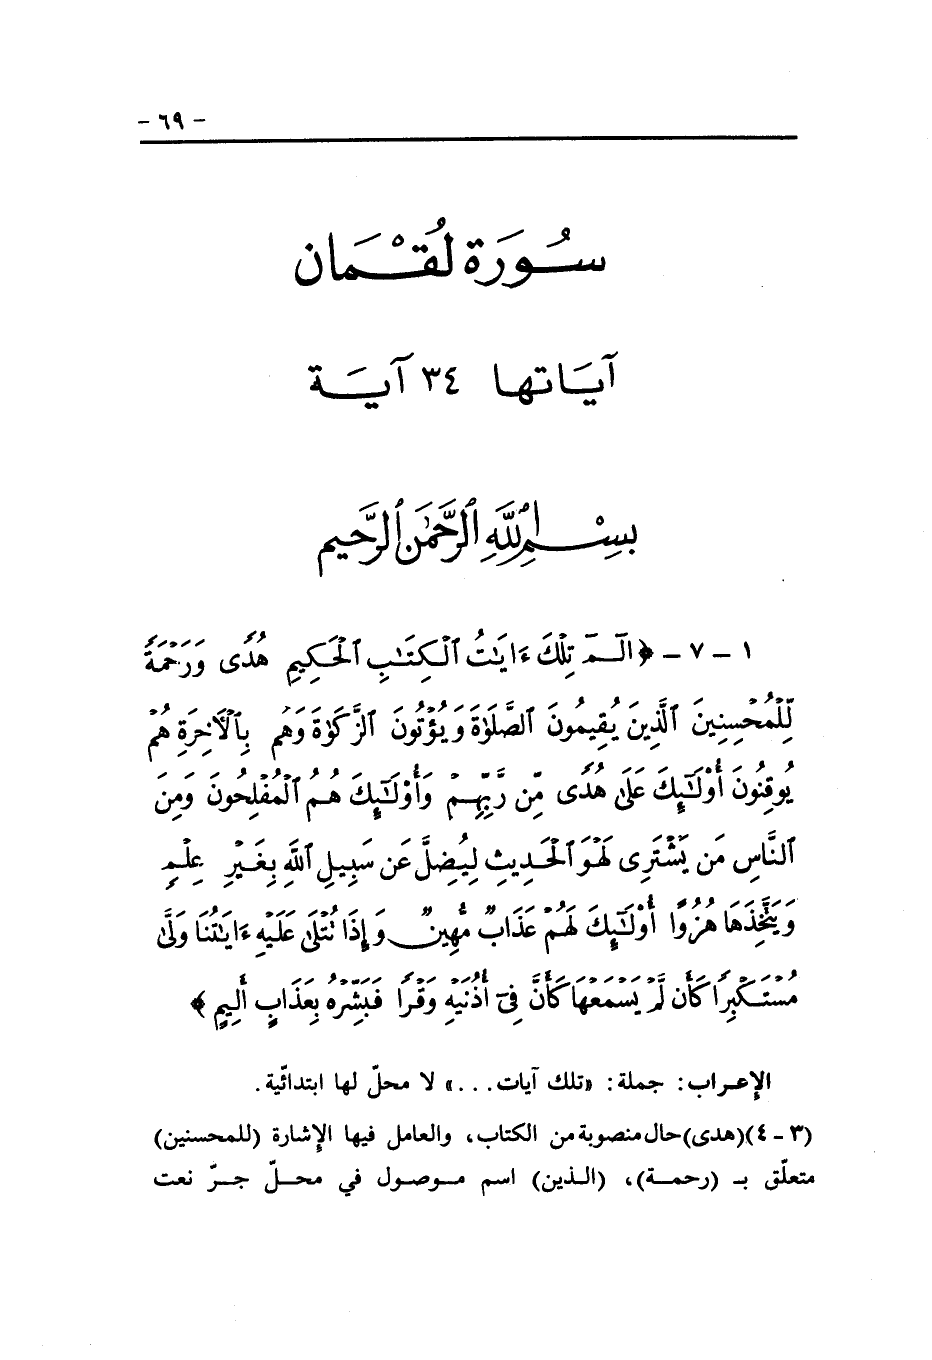 - ٦٩ -
سُورَة لُقْمَان
آيَاتها ٣٤ آيَة
بِسْمِ ٱللَّهِ ٱلرَّحْمَٰنِ ٱلرَّحِيمِ
١ - ٧ - ﴿الٓمٓ تِلْكَ ءَايَٰتُ ٱلْكِتَٰبِ ٱلْحَكِيمِ هُدًى وَرَحْمَةً
لِّلْمُحْسِنِينَ ٱلَّذِينَ يُقِيمُونَ ٱلصَّلَوٰةَ وَيُؤْتُونَ ٱلزَّكَوٰةَ وَهُم بِٱلْأَخِرَةِ هُمْ
يُوقِنُونَ أُوْلَٰٓئِكَ عَلَىٰ هُدًى مِّن رَّبِّهِمْ وَأُوْلَٰٓئِكَ هُمُ ٱلْمُفْلِحُونَ وَمِنَ
ٱلنَّاسِ مَن يَشْتَرِى لَهْوَ ٱلْحَدِيثِ لِيُضِلَّ عَن سَبِيلِ ٱللَّهِ بِغَيْرِ عِلْمٍ
وَيَتَّخِذَهَا هُزُوًا أُوْلَٰٓئِكَ لَهُمْ عَذَابٌ مُّهِينٌ وَإِذَا تُتْلَىٰ عَلَيْهِ ءَايَٰتُنَا وَلَّىٰ
مُسْتَكْبِرًا كَأَن لَّمْ يَسْمَعْهَا كَأَنَّ فِىٓ أُذُنَيْهِ وَقْرًا فَبَشِّرْهُ بِعَذَابٍ أَلِيمٍ﴾
الإعراب: جملة: «تلك آيات...» لا محلّ لها ابتدائّية.
(٣ - ٤)(هدى) حال منصوبة من الكتاب، والعامل فيها الإشارة (للمحسنين)
متعلّق بـ (رحمـة)، (الـذين) اسم مـوصـول في محـلّ جـرّ نعت